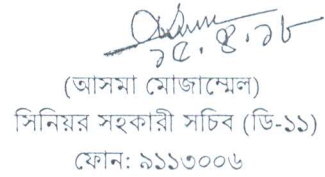 ১৫.৪.১৮
(আসমা মোজাম্মেল)
সিনিয়র সহকারী সচিব (ডি-১১)
ফোন: ৯১১৩০০৬